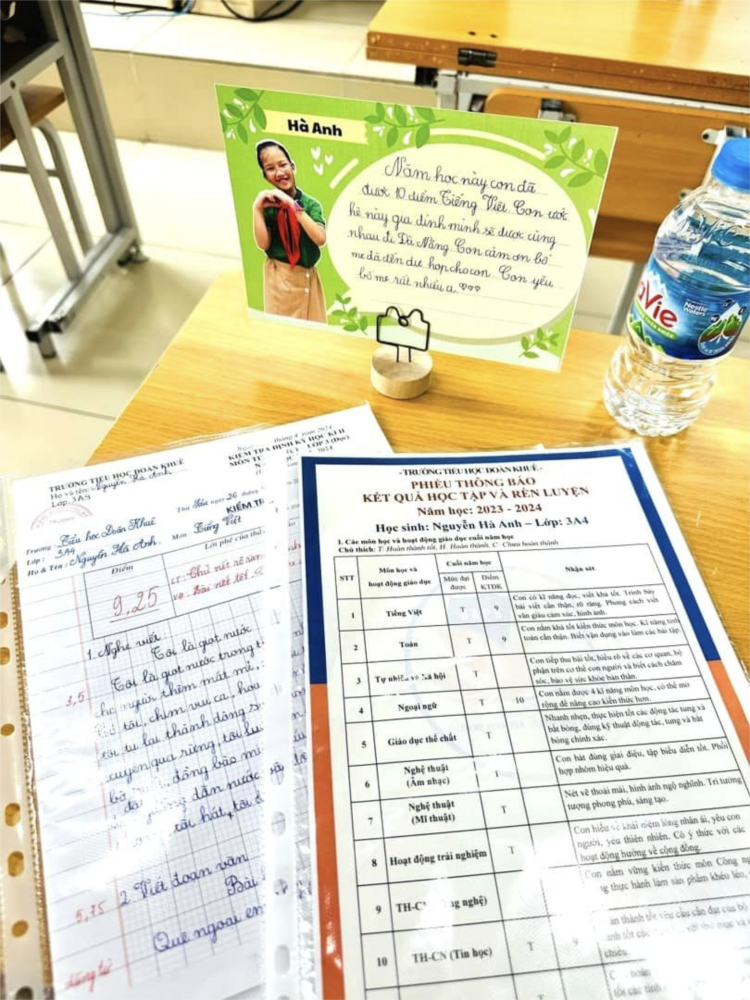 Hà Anh
Năm học này con đã
được 10 điểm Tiếng Việt. Con ước
hè này gia đình mình sẽ được cùng
nhau đi Đà Nẵng. Con cảm ơn bố
mẹ đã đến dự họp cho con. Con yêu
bố mẹ rất nhiều ạ.
aVie
Nestlé
tháng 4 năm 2024
KIỂM TRA ĐỊNH KỲ HỌC KÌ II
LỚP 3 (Đọc)
TRƯỜNG TIỂU HỌC ĐOÀN KHUÊ
Họ và tên: Nguyễn Hà Anh
Lớp: 3A
Thứ Sáu ngày 26 tháng
KIỂM TR
Trường: Tiểu học Đoàn Khuê
Lớp: 3A4
Môn: Tiếng Việt
Họ & Tên: Nguyễn Hà Anh
Điểm
Lời phê của th
9,25
CT: Chữ nét rõ ràn
1. Nghe viết
Tôi là giọt nước
3,5
Tôi là giọt nước trong t
cho người thêm mát mẻ
chim vui ca, hoa
tôi tụ lại thành dòng s
riêng, tôi lu
đồng bào mi
dẫn nước
hát, tôi
5,75
2. Viết đoạn văn
Bài
Quê ngoại em
-TRƯỜNG TIỂU HỌC ĐOÀN KHUÊ-
PHIẾU THÔNG BÁO
KẾT QUẢ HỌC TẬP VÀ RÈN LUYỆN
Năm học: 2023 - 2024
Học sinh: Nguyễn Hà Anh – Lớp: 3A4
1. Các môn học và hoạt động giáo dục cuối năm học
Chú thích: T: Hoàn thành tốt, H: Hoàn thành, C: Chưa hoàn thành
STT Môn học và hoạt động giáo dục Cuối năm học Nhận xét
Mức đạt được Điểm KTĐK
1 Tiếng Việt T 9 Con có kĩ năng đọc, viết khá tốt. Trình bày
bài viết cẩn thận, rõ ràng. Phong cách viết
văn giàu cảm xúc, hình ảnh.
2 Toán T 9 Con nắm khá tốt kiến thức môn học. Kĩ năng tính
toán cẩn thận. Biết vận dụng vào làm các bài tập.
3 Tự nhiên và Xã hội T Con tiếp thu bài tốt, hiểu rõ về các cơ quan, bộ
phận trên cơ thể con người và biết cách chăm
sóc, bảo vệ sức khỏe bản thân.
4 Ngoại ngữ T 10 Con nắm được 4 kĩ năng môn học, có thể mở
rộng để nâng cao kiến thức hơn.
5 Giáo dục thể chất T Nhanh nhẹn, thực hiện tốt các động tác tung và
bắt bóng, đúng kỹ thuật động tác, tung và bắt
bóng chính xác.
6 Nghệ thuật (Âm nhạc) T Con hát đúng giai điệu, tập biểu diễn tốt. Phối
hợp nhóm hiệu quả.
7 Nghệ thuật (Mĩ thuật) T Nét vẽ thoải mái, hình ảnh ngộ nghĩnh. Trí tưởng
tượng phong phú, sáng tạo.
8 Hoạt động trải nghiệm T Con hiểu về khái niệm lòng nhân ái, yêu con
người, yêu thiên nhiên. Có ý thức với các
hoạt động hướng về cộng đồng.
9 TH-C ng nghệ) T Con nắm vững kiến thức môn Công ng
thực hành làm sản phẩm khéo léo,
10 TH-CN (Tin học) T 9 thành tốt yêu cầu cần đạt của bộ